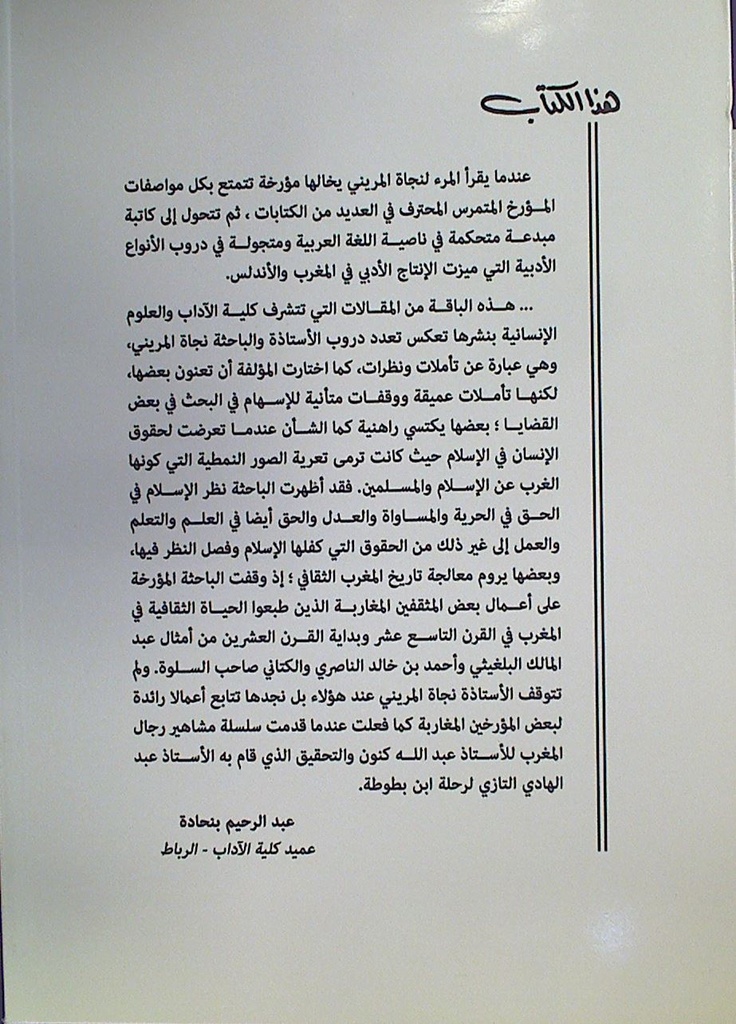 هذا الكتاب
عندما يقرأ المرء لنجاة المريني يخالها مؤرخة تتمتع بكل مواصفات
المؤرخ المتمرس المحترف في العديد من الكتابات ، ثم تتحول إلى كاتبة
مبدعة متحكمة في ناصية اللغة العربية ومتجولة في دروب الأنواع
الأدبية التي ميزت الإنتاج الأدبي في المغرب والأندلس.
... هذه الباقة من المقالات التي تتشرف كلية الآداب والعلوم
الإنسانية بنشرها تعكس تعدد دروب الأستاذة والباحثة نجاة المريني،
وهي عبارة عن تأملات ونظرات، كما اختارت المؤلفة أن تعنون بعضها،
لكنها تأملات عميقة ووقفات متأنية للإسهام في البحث في بعض
القضايا ؛ بعضها يكتسي راهنية كما الشأن عندما تعرضت لحقوق
الإنسان في الإسلام حيث كانت ترمى تعرية الصور النمطية التي كونها
الغرب عن الإسلام والمسلمين. فقد أظهرت الباحثة نظر الإسلام في
الحق في الحرية والمساواة والعدل والحق أيضا في العلم والتعلم
والعمل إلى غير ذلك من الحقوق التي كفلها الإسلام وفصل النظر فيها،
وبعضها يروم معالجة تاريخ المغرب الثقافي ؛ إذ وقفت الباحثة المؤرخة
على أعمال بعض المثقفين المغاربة الذين طبعوا الحياة الثقافية في
المغرب في القرن التاسع عشر وبداية القرن العشرين من أمثال عبد
المالك البلغيثي وأحمد بن خالد الناصري والكتاني صاحب السلوة. ولم
تتوقف الأستاذة نجاة المريني عند هؤلاء بل نجدها تتابع أعمالا رائدة
لبعض المؤرخين المغاربة كما فعلت عندما قدمت سلسلة مشاهير رجال
المغرب للأستاذ عبد الله كنون والتحقيق الذي قام به الأستاذ عبد
الهادي التازي لرحلة ابن بطوطة.
عبد الرحيم بنحادة
عميد كلية الآداب - الرباط